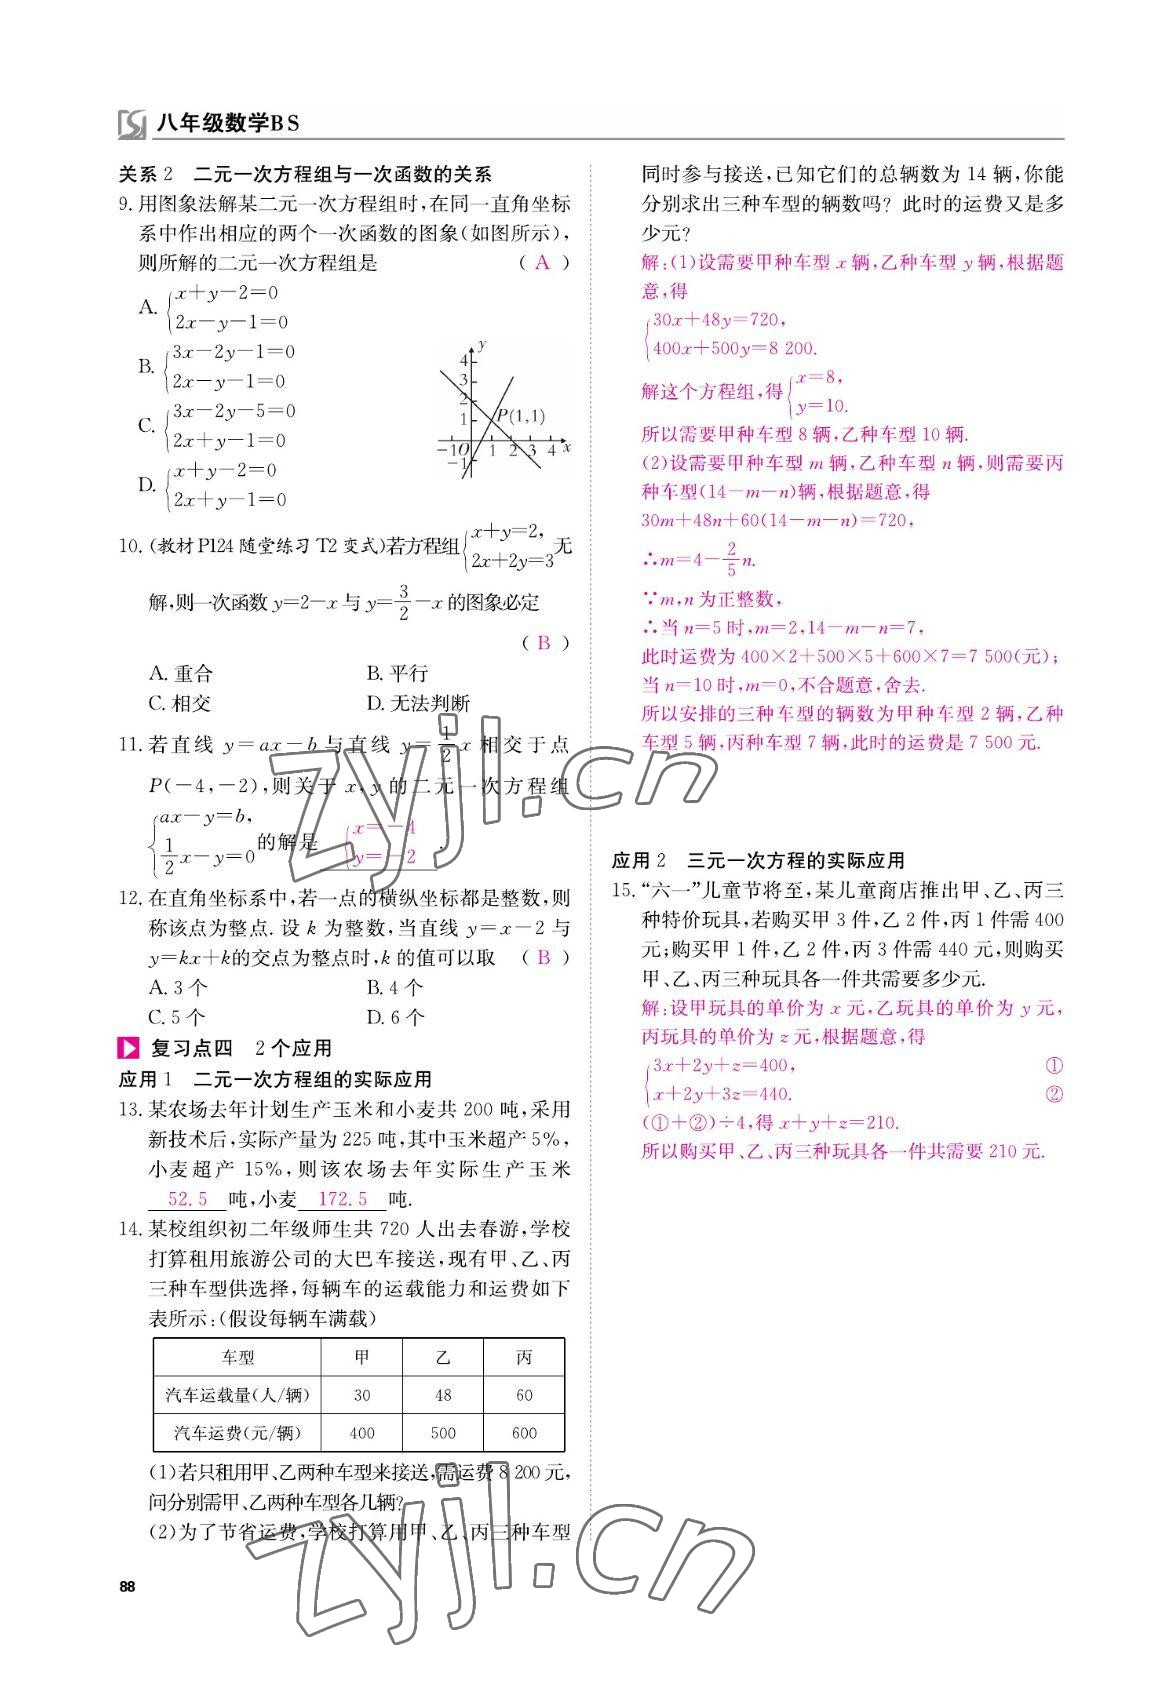 八年级数学BS
关系2 二元一次方程组与一次函数的关系
9. 用图象法解某二元一次方程组时,在同一直角坐标
系中作出相应的两个一次函数的图象(如图所示),
则所解的二元一次方程组是 ( A )
A. {x+y-2=0
2x-y-1=0
B. {3x-2y-1=0
2x-y-1=0
C. {3x-2y-5=0
2x+y-1=0
D. {x+y-2=0
2x+y-1=0
y
4
3
2
1
P(1,1)
-1 O 1 2 3 4 x
-1
10. (教材P124随堂练习T2变式)若方程组{x+y=2, 2x+2y=3 无
解,则一次函数 y=2-x 与 y=3/2-x 的图象必定
( B )
A. 重合 B. 平行
C. 相交 D. 无法判断
11. 若直线 y=ax-b 与直线 y=1/2x 相交于点
P(-4,-2),则关于 x,y 的二元一次方程组
{ax-y=b, 1/2x-y=0 的解是 {x=-4 y=-2 .
12. 在直角坐标系中,若一点的横纵坐标都是整数,则
称该点为整点. 设 k 为整数,当直线 y=x-2 与
y=kx+k的交点为整点时,k 的值可以取 ( B )
A. 3个 B. 4个
C. 5个 D. 6个
复习点四 2个应用
应用1 二元一次方程组的实际应用
13. 某农场去年计划生产玉米和小麦共 200 吨,采用
新技术后,实际产量为 225 吨,其中玉米超产 5%,
小麦超产 15%,则该农场去年实际生产玉米
52.5 吨,小麦 172.5 吨.
14. 某校组织初二年级师生共 720 人出去春游,学校
打算租用旅游公司的大巴车接送,现有甲、乙、丙
三种车型供选择,每辆车的运载能力和运费如下
表所示:(假设每辆车满载)
车型 甲 乙 丙
汽车运载量(人/辆) 30 48 60
汽车运费(元/辆) 400 500 600
(1)若只租用甲、乙两种车型来接送,需运费 8 200 元,
问分别需甲、乙两种车型各几辆?
(2)为了节省运费,学校打算用甲、乙、丙三种车型
88
同时参与接送,已知它们的总辆数为 14 辆,你能
分别求出三种车型的辆数吗? 此时的运费又是多
少元?
解:(1)设需要甲种车型 x 辆,乙种车型 y 辆,根据题
意,得
{30x+48y=720,
400x+500y=8 200.
解这个方程组,得{x=8,
y=10.
所以需要甲种车型 8 辆,乙种车型 10 辆.
(2)设需要甲种车型 m 辆,乙种车型 n 辆,则需要丙
种车型(14-m-n)辆,根据题意,得
30m+48n+60(14-m-n)=720,
∴m=4-2/5n.
∵m,n 为正整数,
∴当 n=5 时,m=2,14-m-n=7,
此时运费为 400×2+500×5+600×7=7 500(元);
当 n=10 时,m=0,不合题意,舍去.
所以安排的三种车型的辆数为甲种车型 2 辆,乙种
车型 5 辆,丙种车型 7 辆,此时的运费是 7 500 元.
应用2 三元一次方程的实际应用
15. “六一”儿童节将至,某儿童商店推出甲、乙、丙三
种特价玩具,若购买甲 3 件,乙 2 件,丙 1 件需 400
元;购买甲 1 件,乙 2 件,丙 3 件需 440 元,则购买
甲、乙、丙三种玩具各一件共需要多少元.
解:设甲玩具的单价为 x 元,乙玩具的单价为 y 元,
丙玩具的单价为 z 元,根据题意,得
{3x+2y+z=400, ①
x+2y+3z=440. ②
(①+②)÷4,得 x+y+z=210.
所以购买甲、乙、丙三种玩具各一件共需要 210 元.
zyjl.cn
zyjl.cn